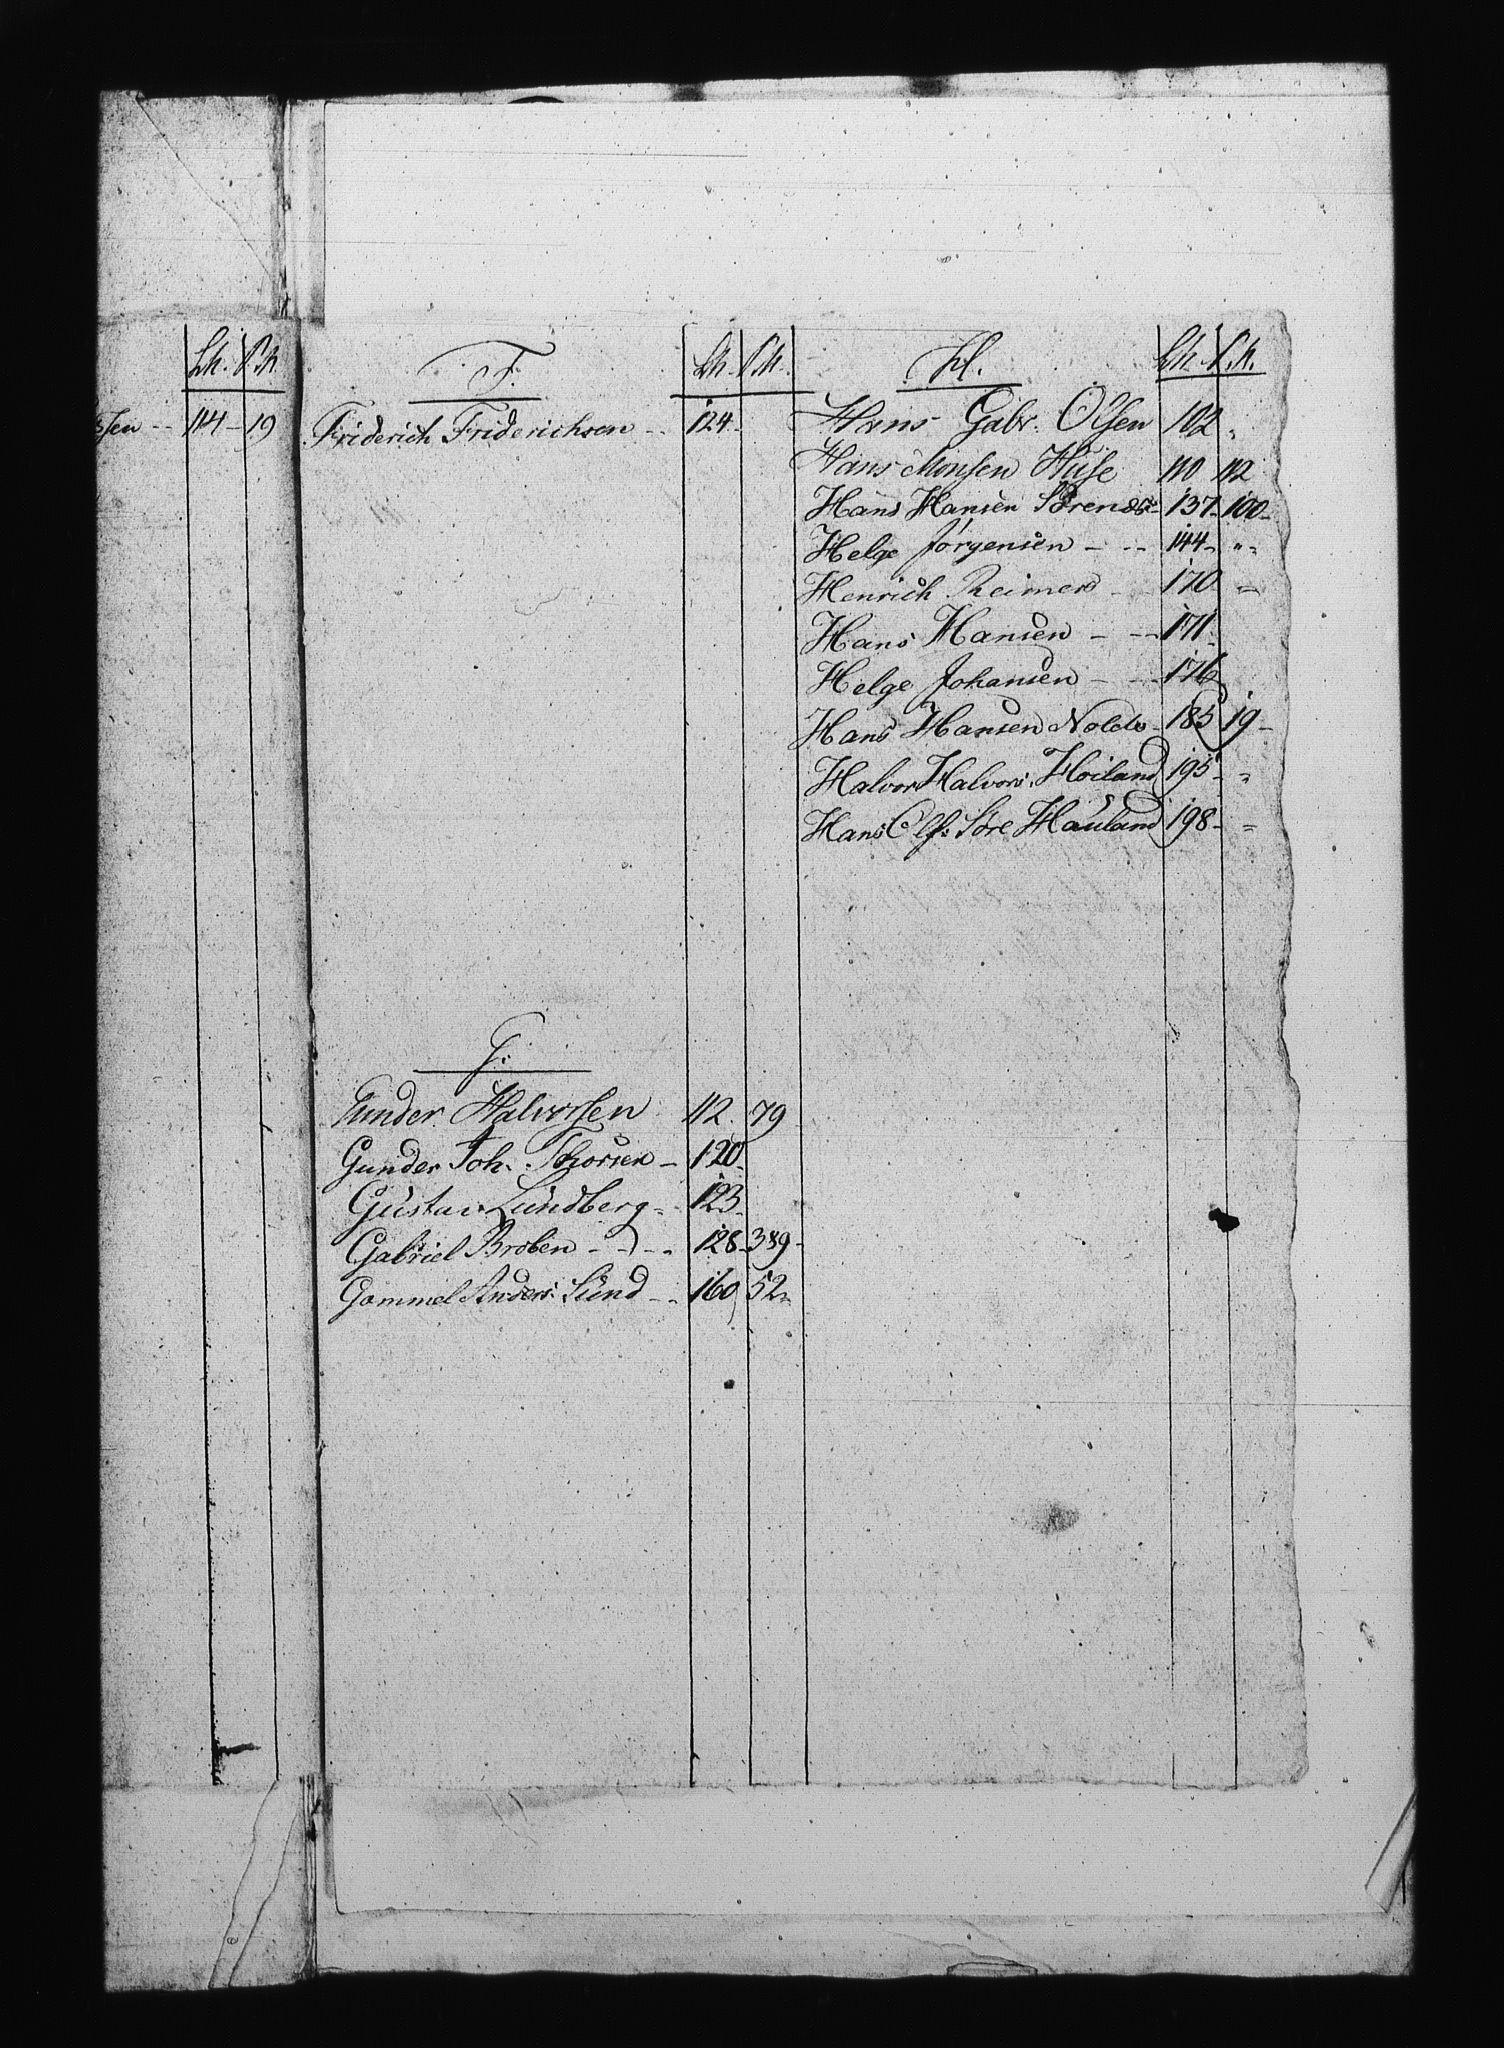 sen -- 114 - 19
F.
Friderich Friderichsen -- 124.
G:
Gunder Halvorsen 112. 79
Gunder Joh. Thorsen - 120
Gustav Lundberg -- 123
Gabriel Broben - - - 128 - 389 -
Gammel Anders: Sund -- 160 52
H.
Hans Gabr. Olsen 102 "
Hans Monsen Huse 110 112
Hans Hansen Sörends: 137 - 100 -
Helge Jørgensen - -- 144 - "
Henrich Reimers -- 170 -
Hans Hansen - -- 171
Helge Johansen - -- 176
Hans Hansen Nolds - 185 19 -
Halvor Halvors: Höiland 195 - "
Hans Ols: Söre Hauland 198 - "